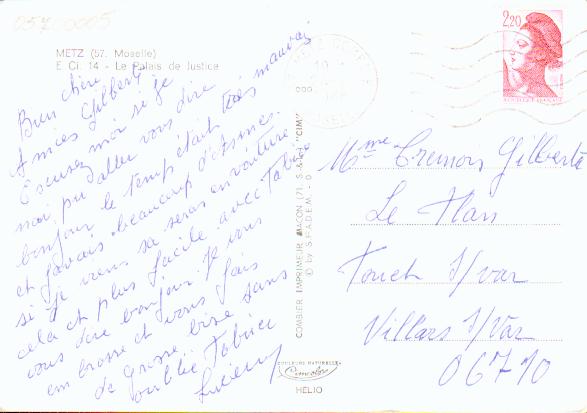 05700005
METZ (57. Moselle)
E Ci. 14 - Le Palais de Justice
Bien chère
Amies Gilberte
Escusez moi si je
nai pu aller vous dire
bonjour le temps était très mauvais
et javais beaucoup d'asme.
si je viens sa seras en voiture
cela et plus facile avec Fabrice
vous dire bonjour. Je vous
embrasse et vous fais
de grosse bise sans
oublié Fabrice
Lucienne
COMBIER IMPRIMEUR MACON (71. S.-&-L.) "CIM"
© by SPADEM
COULEURS NATURELLES
Cimcolor
HÉLIO
2,20
Mme Cremoni Gilberte
Le Plan
Touët S/var
Villars S/Var
06710